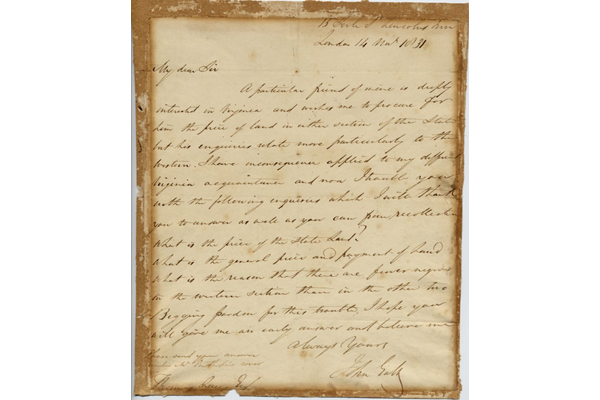 Lincolns Inn
London 14 Nov 1831
My dear Sir
A particular friend of mine is deeply
interested in Virginia and wishes me to procure for
him the price of land in either section of the State
but his enquiries relate more particularly to the
Western. I have in consequence applied to my different
Virginia acquaintance and now I trouble you
with the following enquiries which I will thank
you to answer as well as you can from recollection
What is the price of the State Land?
What is the general price and payment of Land
What is the reason that there are fewer negroes
in the western section than in the other two
Begging pardon for this trouble, I hope you
will give me an early answer and believe me
Always Yours
send your answer
John
Esq